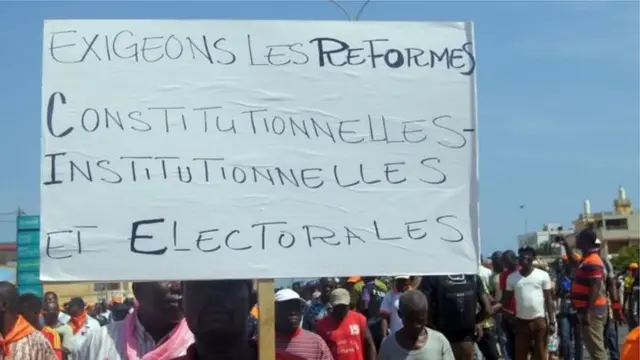 EXIGEONS LES REFORMES
CONSTITUTIONNELLES-
INSTITUTIONNELLES
ET ELECTORALES